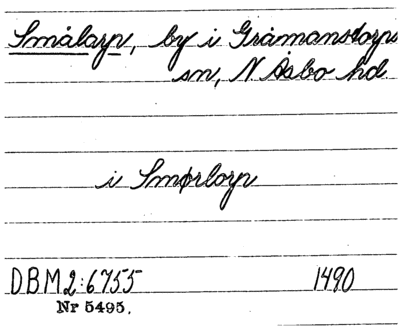 Smålarp, by i Gråmanstorps
sn, N Åsbo hd
i Smørlorp
DBM 2:6755 1490
Nr 5495.